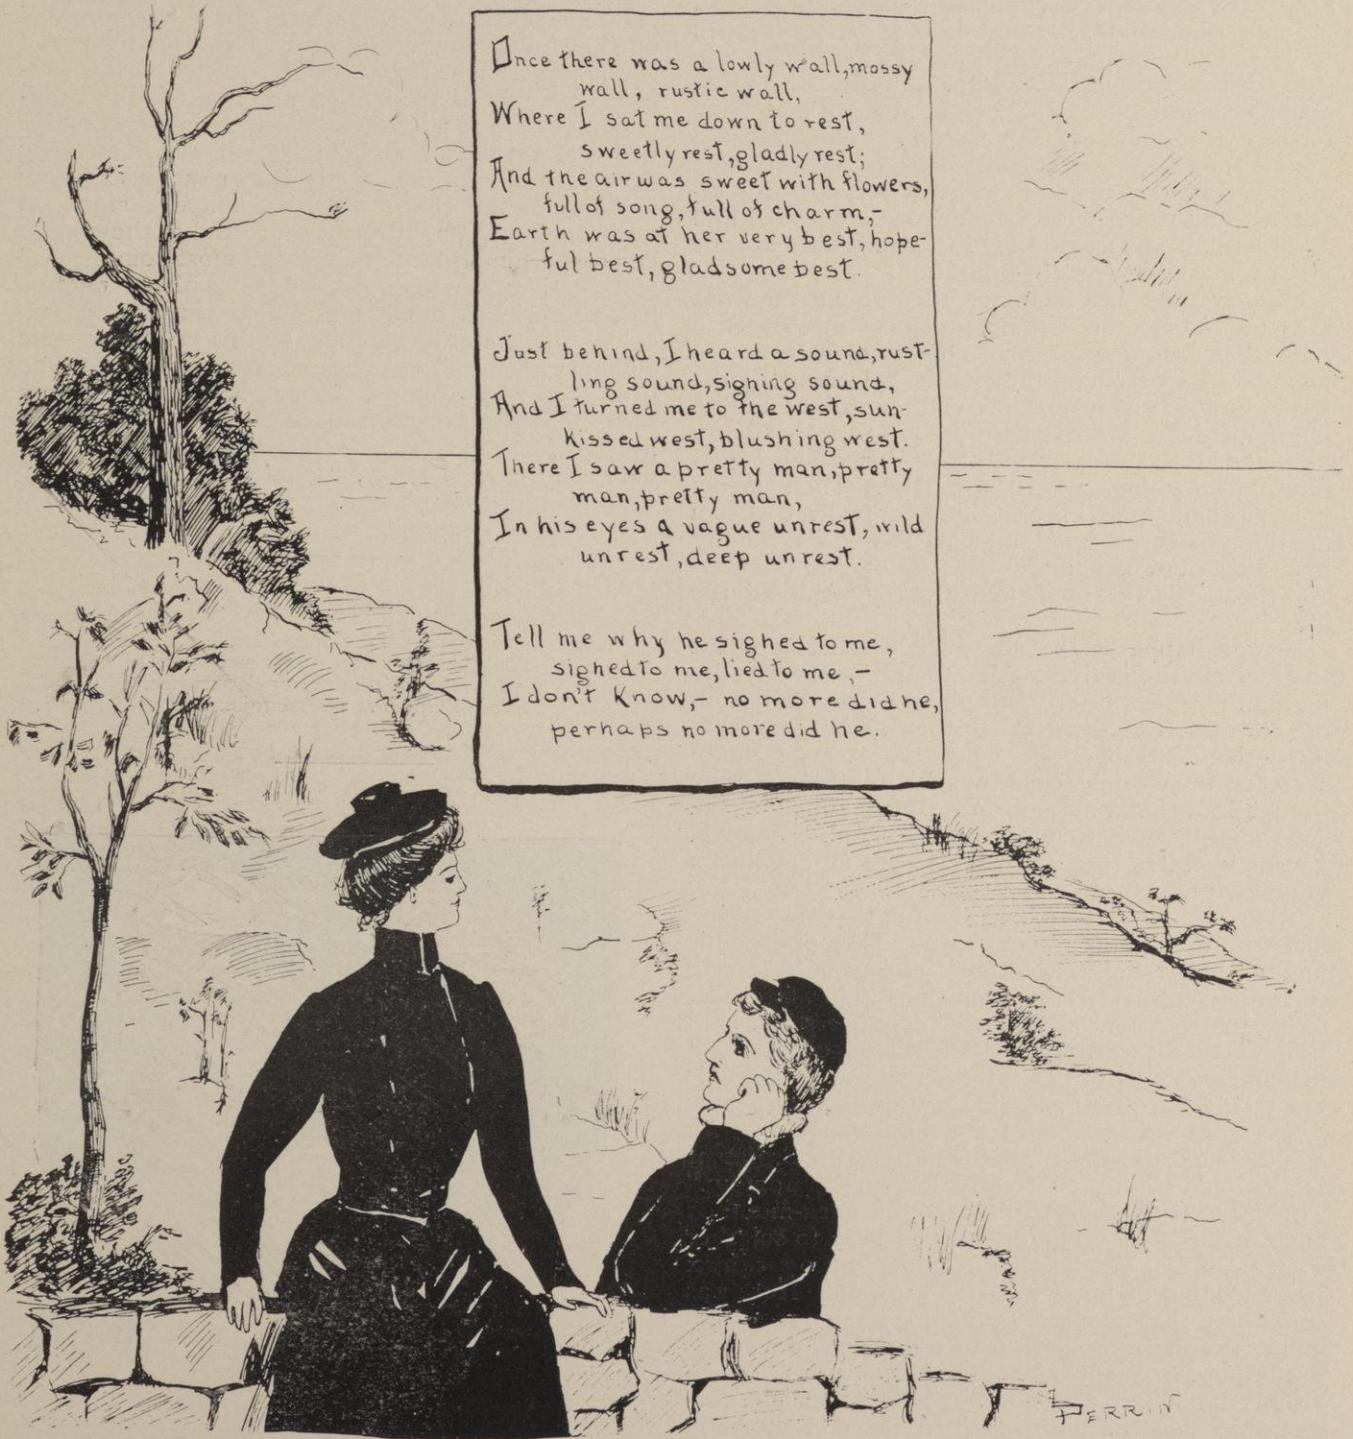 Once there was a lowly wall, mossy
wall, rustic wall,
Where I sat me down to rest,
sweetly rest, gladly rest;
And the air was sweet with flowers,
full of song, full of charm,-
Earth was at her very best, hope-
ful best, gladsome best.
Just behind, I heard a sound, rust-
ling sound, signing sound,
And I turned me to the west, sun-
kissed west, blushing west.
There I saw a pretty man, pretty
man, pretty man,
In his eyes a vague unrest, wild
unrest, deep unrest.
Tell me why he sighed to me,
sighed to me, lied to me,-
I don't know,- no more did he,
perhaps no more did he.
PERRIN